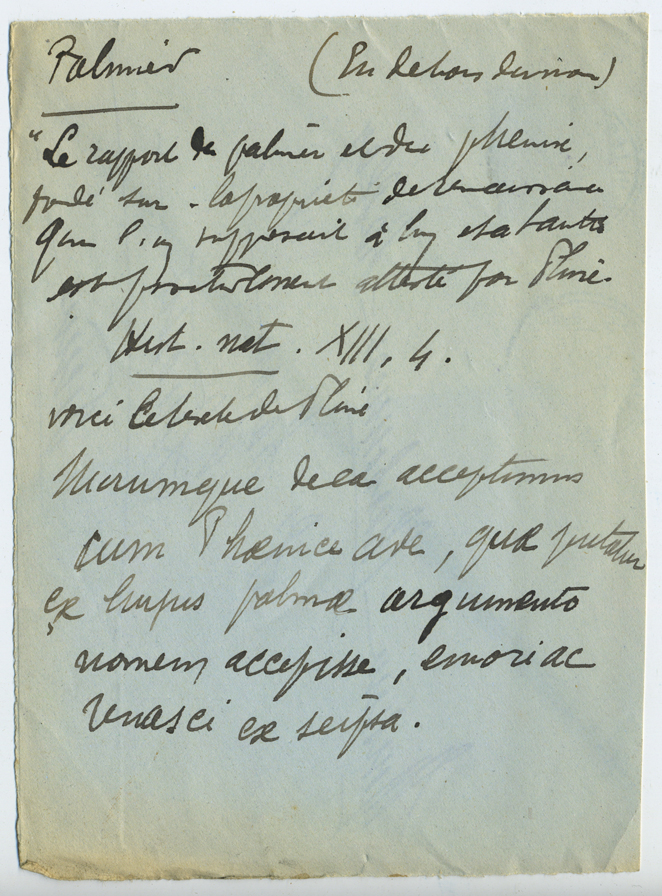 Palmier (En dehors du nom)
"Le rapport du palmier et du phénix,
fondé sur la propriété de renaissance
que l'on supposait à lui et à l'autre
est formellement attesté par Pline.
Hist. nat. XIII, 4.
voici le texte de Pline
Mirumque de ea accepimus
cum Phœnice ave, quæ putatur
ex hujus palmæ argumento
nomem accepisse, emori ac
renasci ex seipsa.